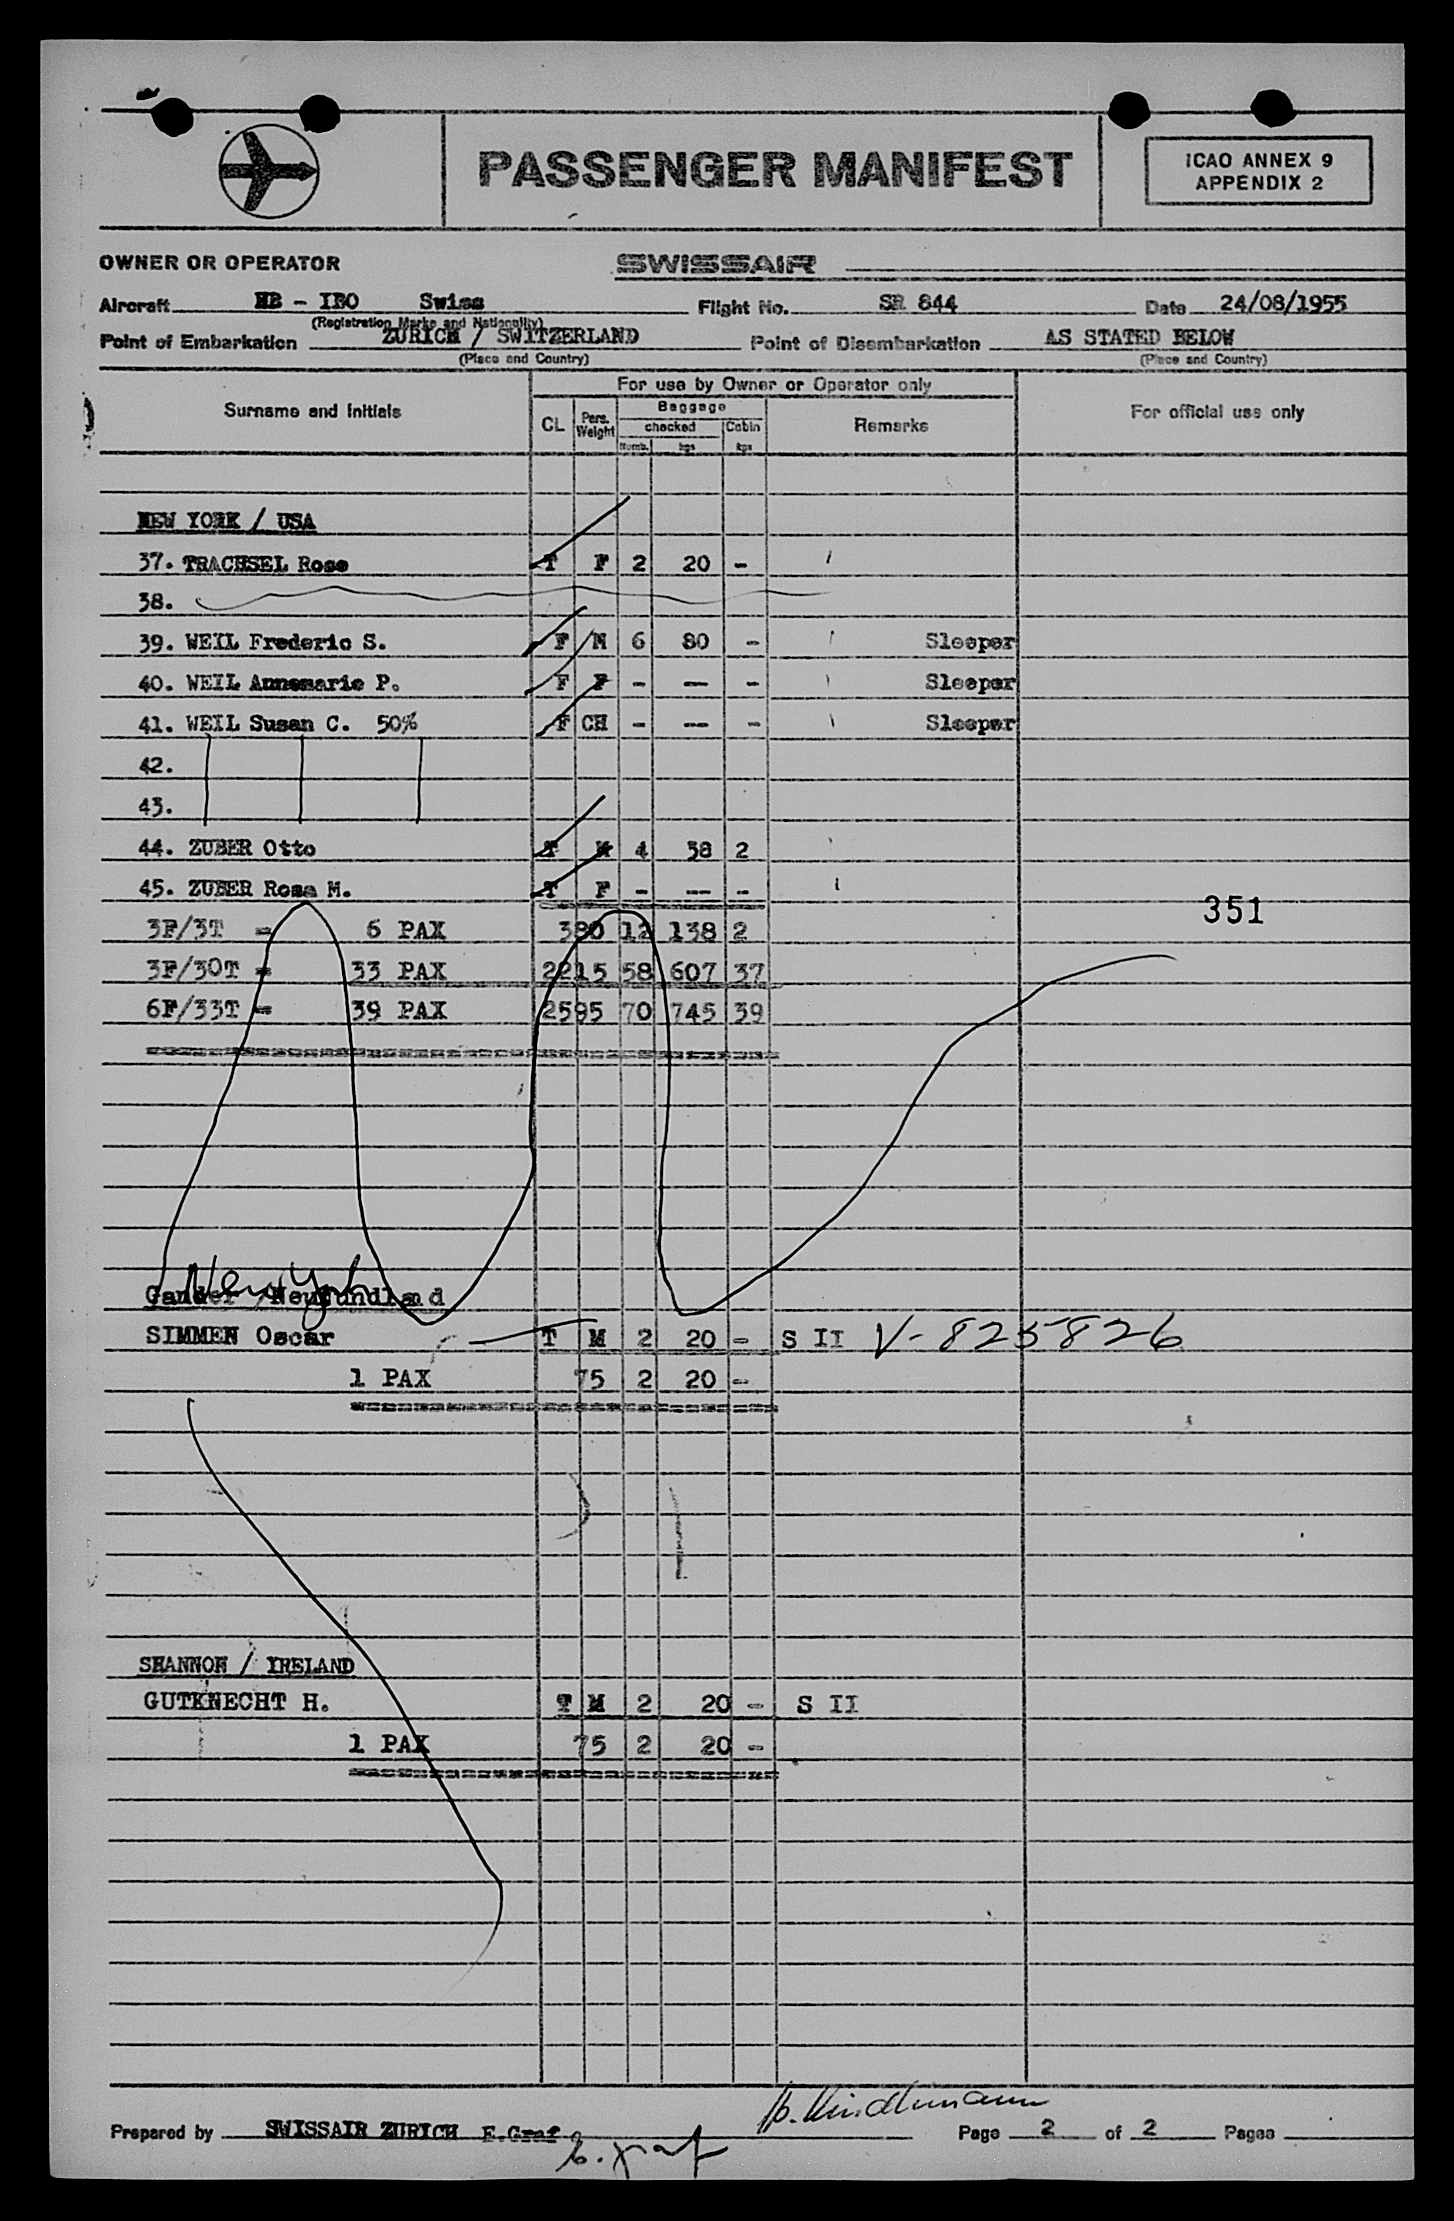 PASSENGER MANIFEST
ICAO ANNEX 9
APPENDIX 2
OWNER OR OPERATOR SWISSAIR
Aircraft HB - IBO Swiss Flight No. SR 844 Date 24/08/1955
(Registration Marks and Nationality)
Point of Embarkation ZURICH / SWITZERLAND Point of Disembarkation AS STATED BELOW
(Place and Country) (Place and Country)
For use by Owner or Operator only
Surname and Initials CL Pers. Weight Baggage checked Numb. kgs Cabin kgs Remarks For official use only
NEW YORK / USA
37. TRACHSEL Rose T F 2 20 -
38.
39. WEIL Frederic S. F M 6 80 - Sleeper
40. WEIL Annemarie P. F F - -- - Sleeper
41. WEIL Susan C. 50% F CH - -- - Sleeper
42.
43.
44. ZUBER Otto T M 4 38 2
45. ZUBER Rosa M. T F - -- -
351
3F/3T = 6 PAX 380 12 138 2
3F/30T = 33 PAX 2215 58 607 37
6F/33T = 39 PAX 2595 70 745 39
New York
Gander / Neufundland
SIMMEN Oscar T M 2 20 - S II V-825826
1 PAX 75 2 20 -
SHANNON / IRELAND
GUTKNECHT H. T M 2 20 - S II
1 PAX 75 2 20 -
Prepared by SWISSAIR ZURICH E.Graf Page 2 of 2 Pages
E. Graf